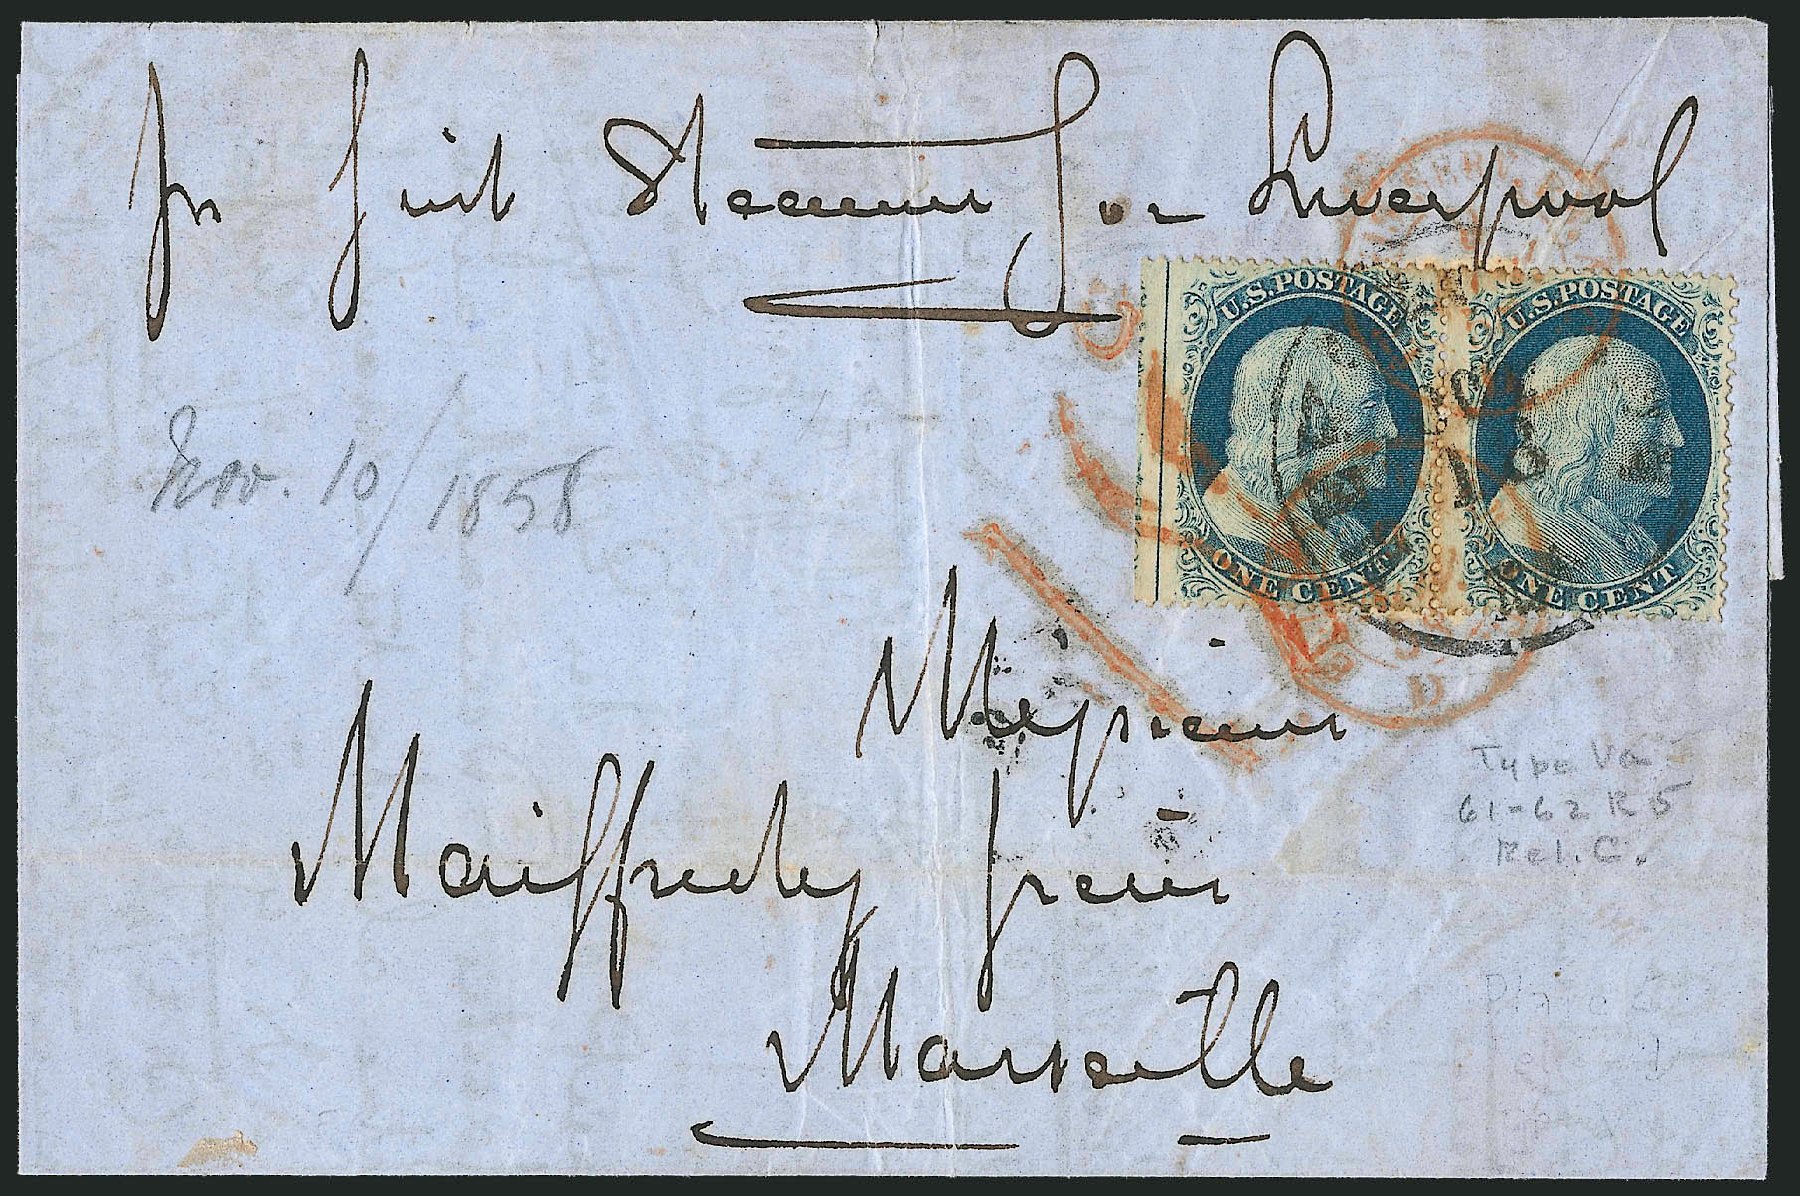 pr first Steamer for Liverpool
U.S. POSTAGE U.S. POSTAGE
18
ONE CENT ONE CENT
Nov. 10/1858
Messieurs
Type Va
61-62 R 5
Rel. C.
Maiffredy frères
Marseille